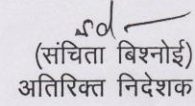 sd/-
(संचिता बिश्नोई)
अतिरिक्त निदेशक